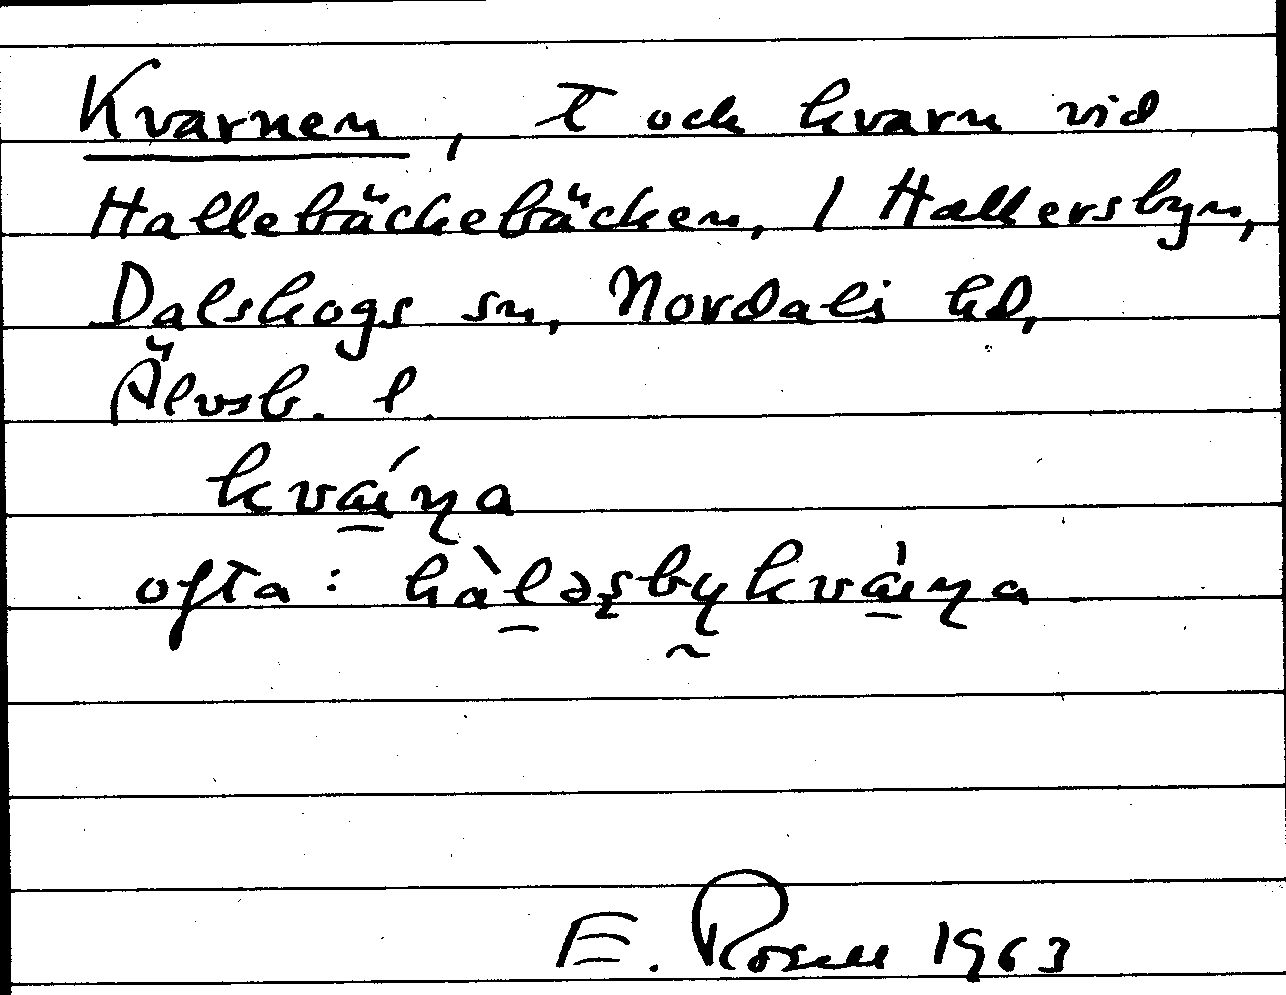 Kvarnen, t och kvarn vid
Hallebäckebäcken, / Hallersbyn,
Dalskogs sn, Nordals hd,
Älvsb. l.
kvaɳ́a
ofta: hàl̲əʂby̰kváɳa
E. Rosell 1963